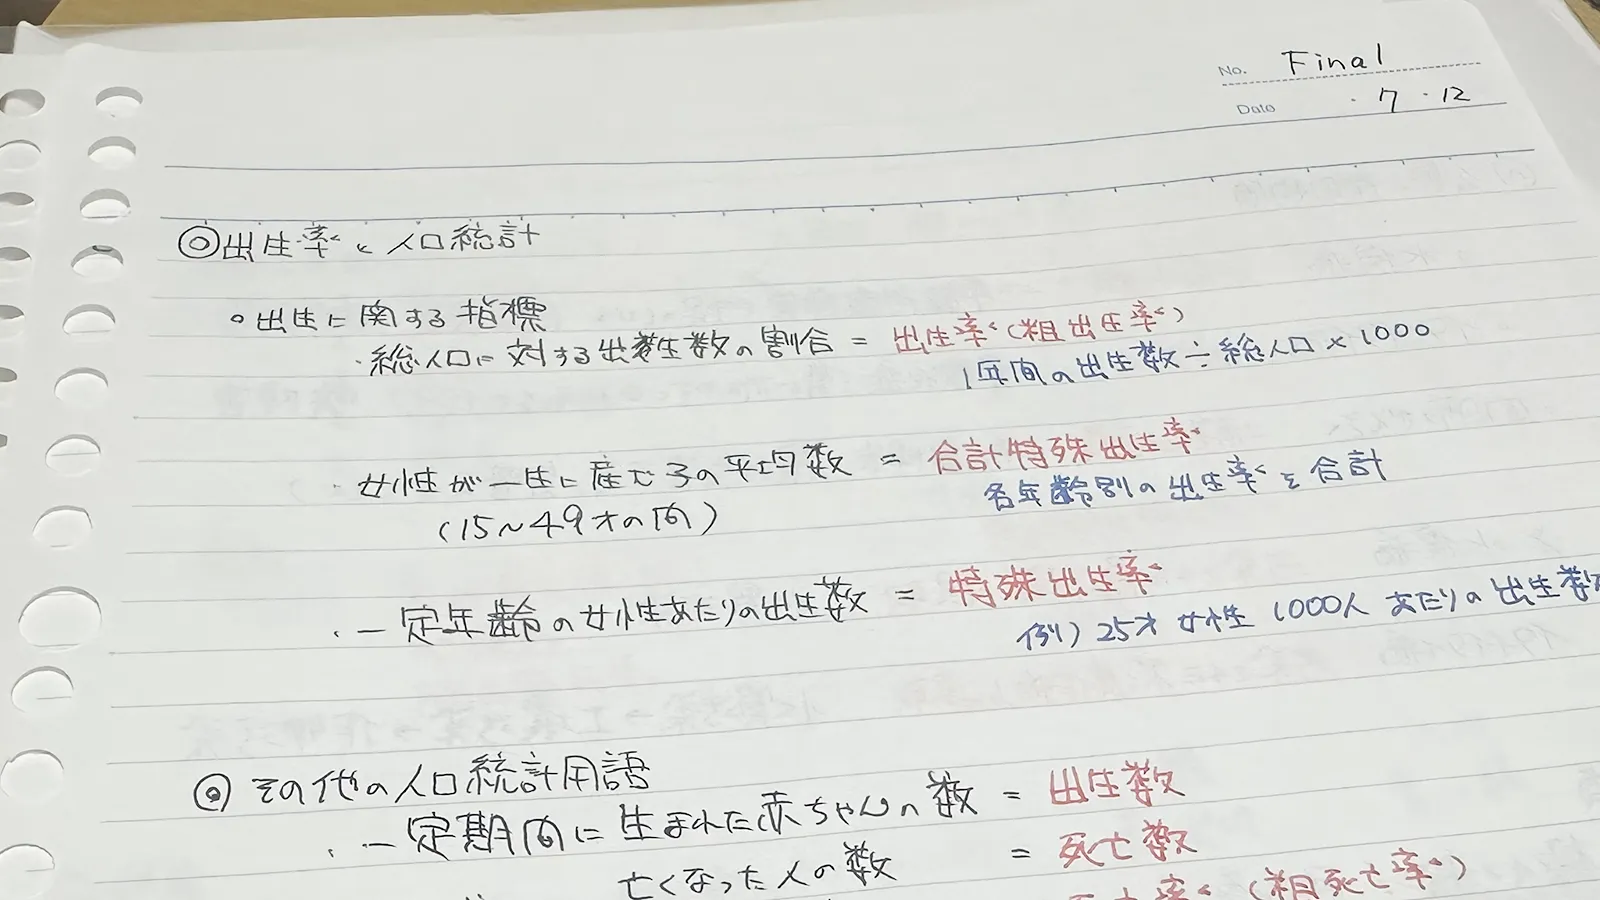 No. Final
Date ・7・12
◎出生率と人口統計
○出生に関する指標
・総人口に対する出生数の割合 = 出生率(粗出生率)
1年間の出生数÷総人口×1000
・女性が一生に産む子の平均数 = 合計特殊出生率
(15~49才の間) 各年齢別の出生率を合計
・一定年齢の女性あたりの出生数 = 特殊出生率
例) 25才女性1000人あたりの出生数
◎その他の人口統計用語
・一定期間に生まれた赤ちゃんの数 = 出生数
亡くなった人の数 = 死亡数
死亡率(粗死亡率)